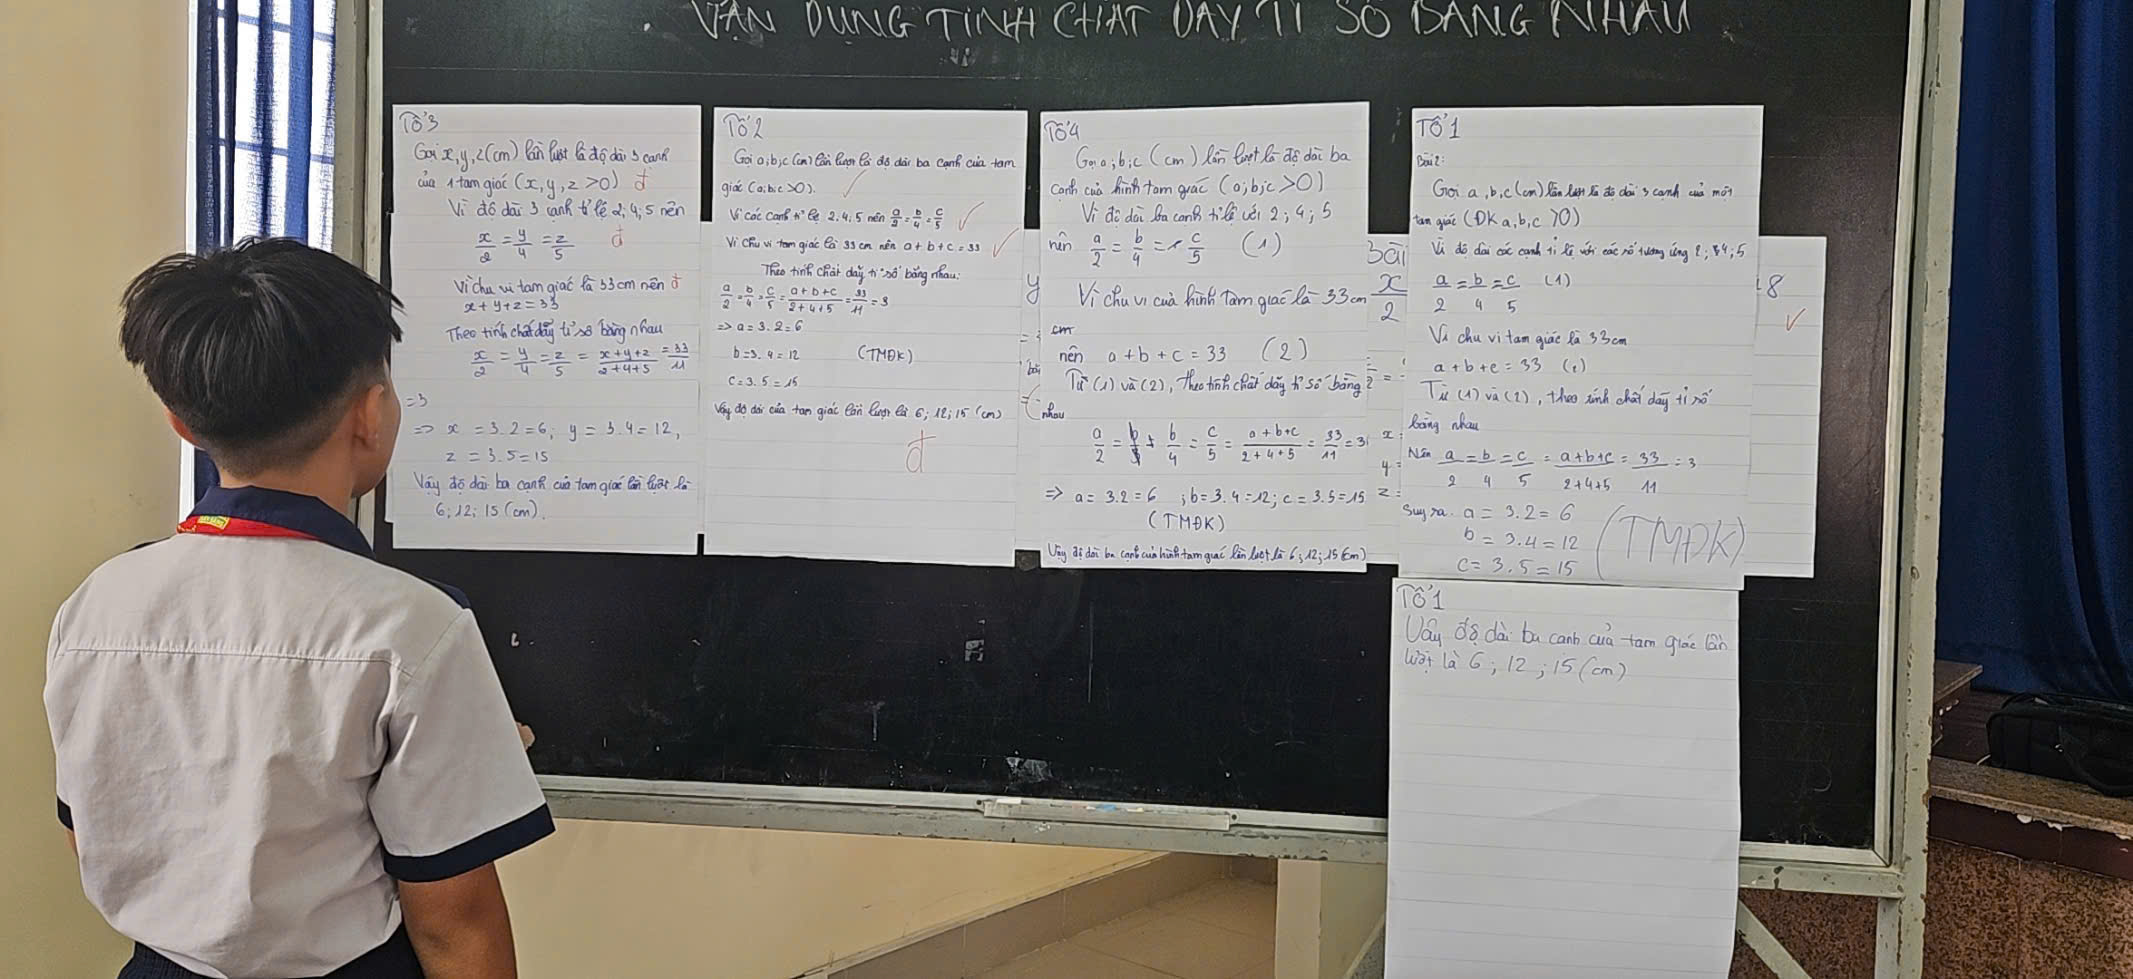 VẬN DỤNG TÍNH CHẤT DÃY TỈ SỐ BẰNG NHAU
Tổ 3
Gọi x, y, z (cm) lần lượt là độ dài 3 cạnh
của 1 tam giác (x, y, z >0) đ
Vì độ dài 3 cạnh tỉ lệ 2; 4; 5 nên
x/2 = y/4 = z/5 đ
Vì chu vi tam giác là 33 cm nên đ
x + y + z = 33
Theo tính chất dãy tỉ số bằng nhau
x/2 = y/4 = z/5 = x+y+z/2+4+5 = 33/11
=3
=> x = 3.2=6; y = 3.4=12,
z = 3.5=15
Vậy độ dài ba cạnh của tam giác lần lượt là
6; 12; 15 (cm).
Tổ 2
Gọi a; b; c (cm) lần lượt là độ dài ba cạnh của tam
giác (a; b; c >0).
Vì các cạnh tỉ lệ 2; 4; 5 nên a/2 = b/4 = c/5
Vì chu vi tam giác là 33 cm nên a + b + c = 33
Theo tính chất dãy tỉ số bằng nhau:
a/2 = b/4 = c/5 = a+b+c/2+4+5 = 33/11 = 3
=> a = 3.2=6
b = 3.4 = 12 (TMĐK)
c = 3.5 = 15
Vậy độ dài của tam giác lần lượt là 6; 12; 15 (cm)
đ
Tổ 4
Gọi a; b; c (cm) lần lượt là độ dài ba
cạnh của hình tam giác (a; b; c >0)
Vì độ dài ba cạnh tỉ lệ với 2; 4; 5
nên a/2 = b/4 = c/5 (1)
Vì chu vi của hình tam giác là 33 cm
cm
nên a + b + c = 33 (2)
Từ (1) và (2), theo tính chất dãy tỉ số bằng
nhau
a/2 = b/4 = c/5 = a+b+c/2+4+5 = 33/11 = 3
=> a = 3.2 = 6 ; b = 3.4 = 12; c = 3.5 = 15
(TMĐK)
Vậy độ dài ba cạnh của hình tam giác lần lượt là 6; 12; 15 (cm)
Bài
x/2
Tổ 1
Bài 2:
Gọi a, b, c (cm) lần lượt là độ dài 3 cạnh của một
tam giác (ĐK a, b, c >0)
Vì độ dài các cạnh tỉ lệ với các số tương ứng 2; 4; 5
a/2 = b/4 = c/5 (1)
Vì chu vi tam giác là 33cm
a + b + c = 33 (2)
Từ (1) và (2), theo tính chất dãy tỉ số
bằng nhau
Nên a/2 = b/4 = c/5 = a+b+c/2+4+5 = 33/11 = 3
Suy ra a = 3.2 = 6
b = 3.4 = 12 (TMĐK)
c = 3.5 = 15
Tổ 1
Vậy độ dài ba cạnh của tam giác lần
lượt là 6; 12; 15 (cm)